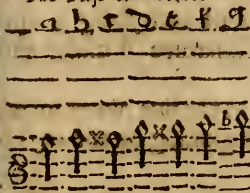 a b c d e f g
b